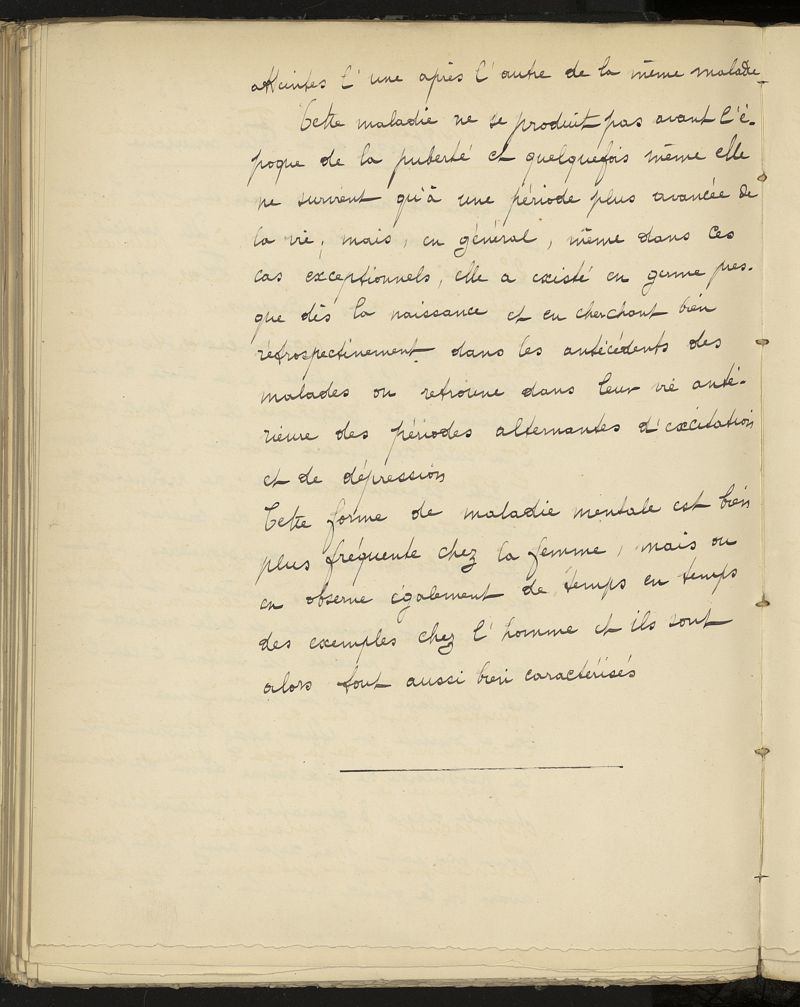 atteintes l'une après l'autre de la même maladie
Cette maladie ne se produit pas avant l'é-
poque de la puberté et quelquefois même elle
ne survient qu'à une période plus avancée de
la vie, mais, en général, même dans ces
cas exceptionnels, elle a existé en germe pres-
que dès la naissance et en cherchant bien
rétrospectivement dans les antécédents des
malades on retrouve dans leur vie anté-
rieure des périodes alternantes d'excitation
et de dépression
Cette forme de maladie mentale est bien
plus fréquente chez la femme, mais on
en observe également de temps en temps
des exemples chez l'homme et ils sont
alors tout aussi bien caractérisés